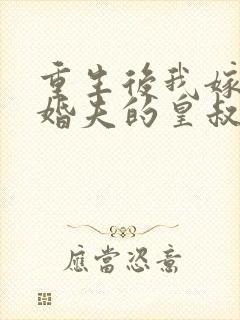 重生後我嫁
婚夫的皇叔
應當恣意